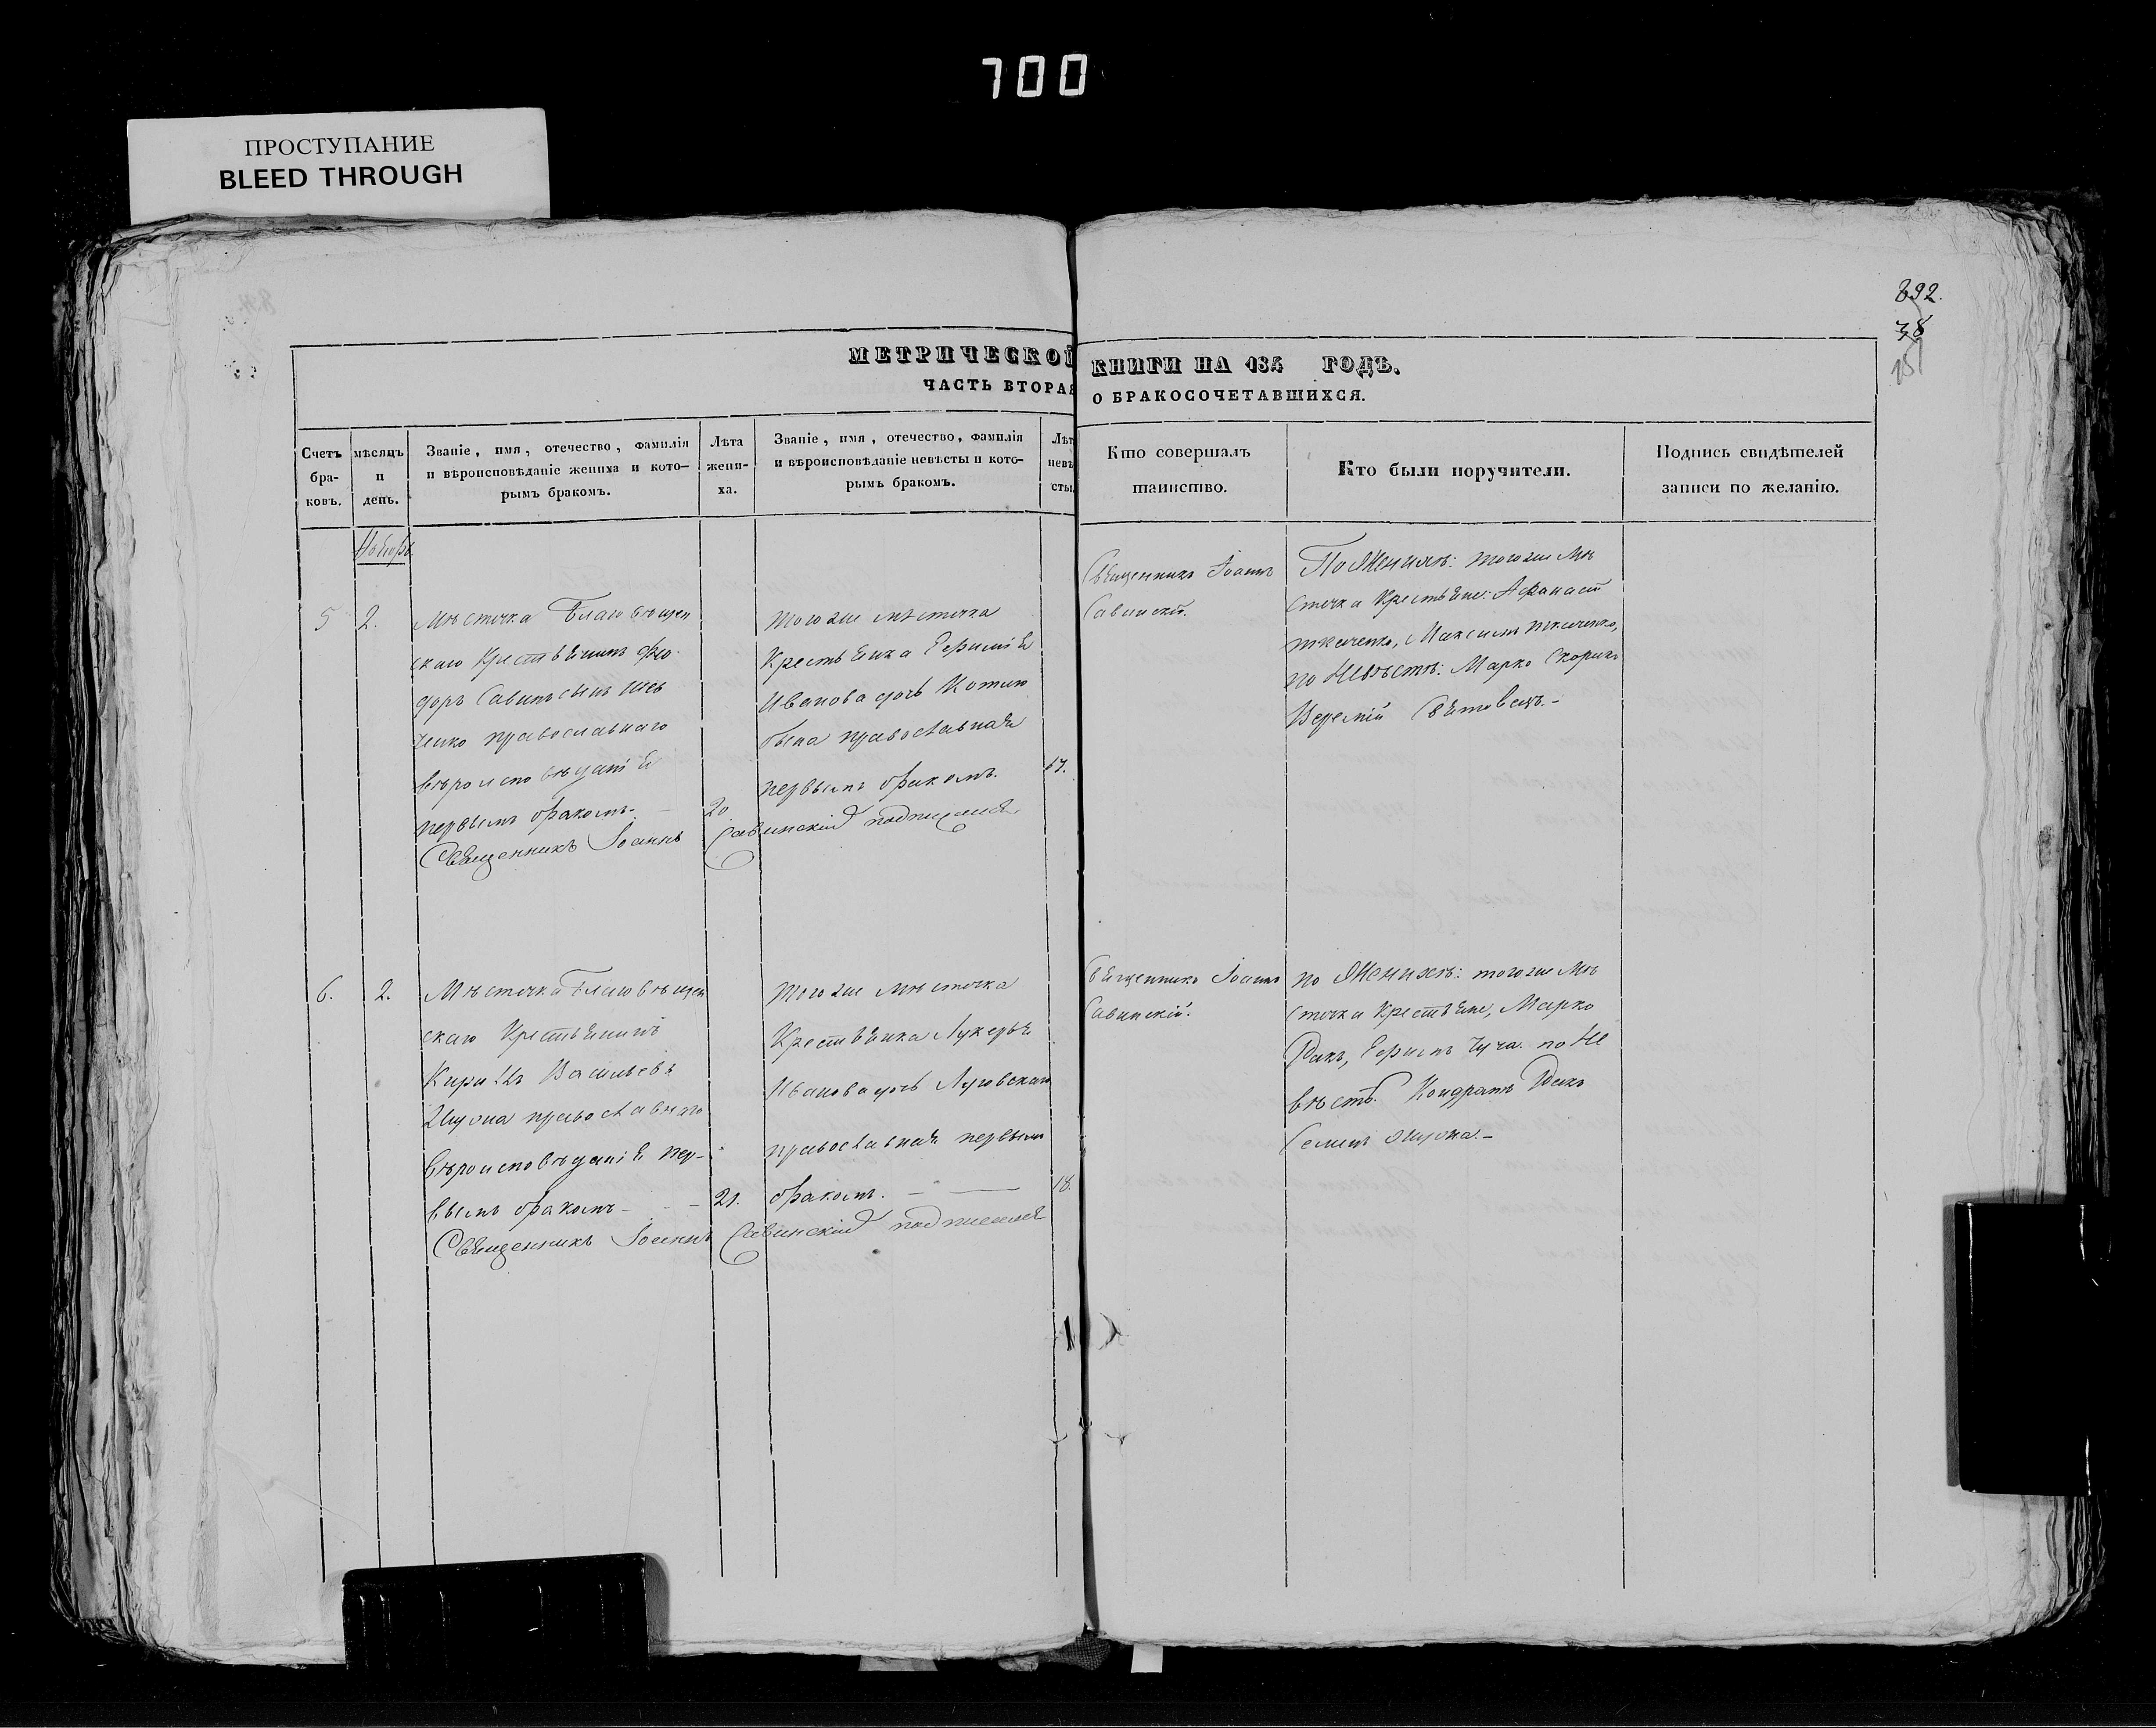 700
ПРОСТУПАНИЕ
BLEED THROUGH
892.
38
МЕТРИЧЕСКОЙ КНИГИ НА 184 ГОДЪ.
ЧАСТЬ ВТОРАЯ О БРАКОСОЧЕТАВШИХСЯ.
Счетъ
бра-
ковъ.
мѣсяцъ
и
день.
Званіе, имя, отечество, фамилія
и вѣроисповѣданіе жениха и кото-
рымъ бракомъ.
Лѣта
жени-
ха.
Званіе, имя, отечество, фамилія
и вѣроисповѣданіе невѣсты и кото-
рымъ бракомъ.
Лѣт
невѣ
сты.
Кто совершалъ
таинство.
Кто были поручители.
Подпись свидѣтелей
записи по желанію.
Ноябрь
5
2.
Мѣстечка Благовѣщен
скаго Крестьянинъ Фео
доръ Савинъ сынъ Шев
ченко православнаго
вѣроисповѣданія
первымъ бракомъ.
20
тогоже мѣстечка
Крестьянка Ефимія
Иванова дочь
православная
первымъ бракомъ.
17.
Священникъ Іоаннъ Савинскій подписался
Священникъ Іоаннъ
Савинскій.
По Женихѣ: тогоже мѣ
стечка Крестьяне: Афанасій
Ткаченко, Максимъ Ткаченко,
по Невѣстѣ: Марко
6.
2.
Мѣстечка Благовѣщен
скаго Крестьянинъ
Кирилъ Васильевъ
православнаго
вѣроисповѣданія пер-
вымъ бракомъ - - -
21.
тогоже мѣстечка
Крестьянка Лукерья
Иванова дочь Луговскаго
православная первымъ
бракомъ. —
18.
Священникъ Іоаннъ Савинскій подписался
Священникъ Іоаннъ
Савинскій.
по Женихѣ: тогоже мѣ
стечка Крестьяне, Марко
Ракъ, Ефимъ по Не
вѣстѣ. Кондратъ Ракъ